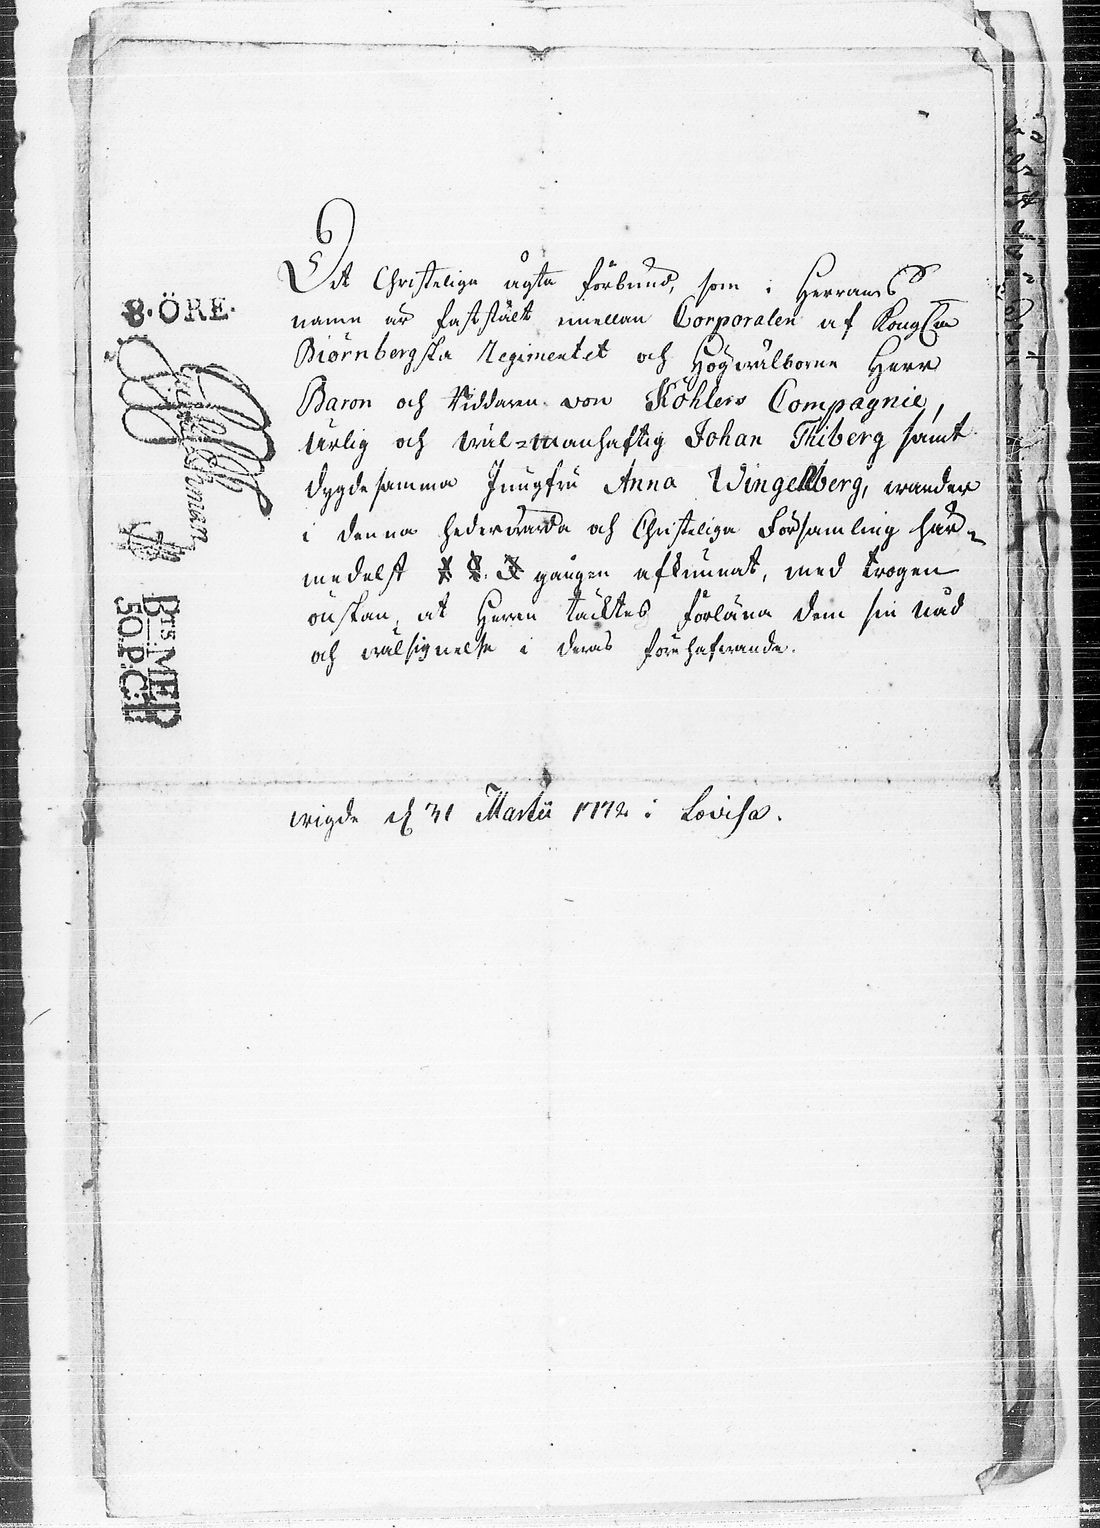 8. ÖRE.
Bts. MED
50. P. Ct.
Det Christeliga ägta förbund, som i Herrans
namn är fastställt emellan Corporalen af Kongl.
Biörnbergska Regimentet och Högwälborne Herr
Baron och Riddaren von Köhlers Compagnie,
ärlig och wäl=manhaftig Johan Thiberg samt
dygdesamma Jungfru Anna Wingelberg, warder
i denna hedervärda och Christeliga Församling här=
medelst 1 2. 3 gången afkunnat, med trogen
önskan, at Herren täcktes förläna dem sin nåd
och wälsignelse i deras förehafwande.
wigde d 31 Martii 1772 i Lovisa.